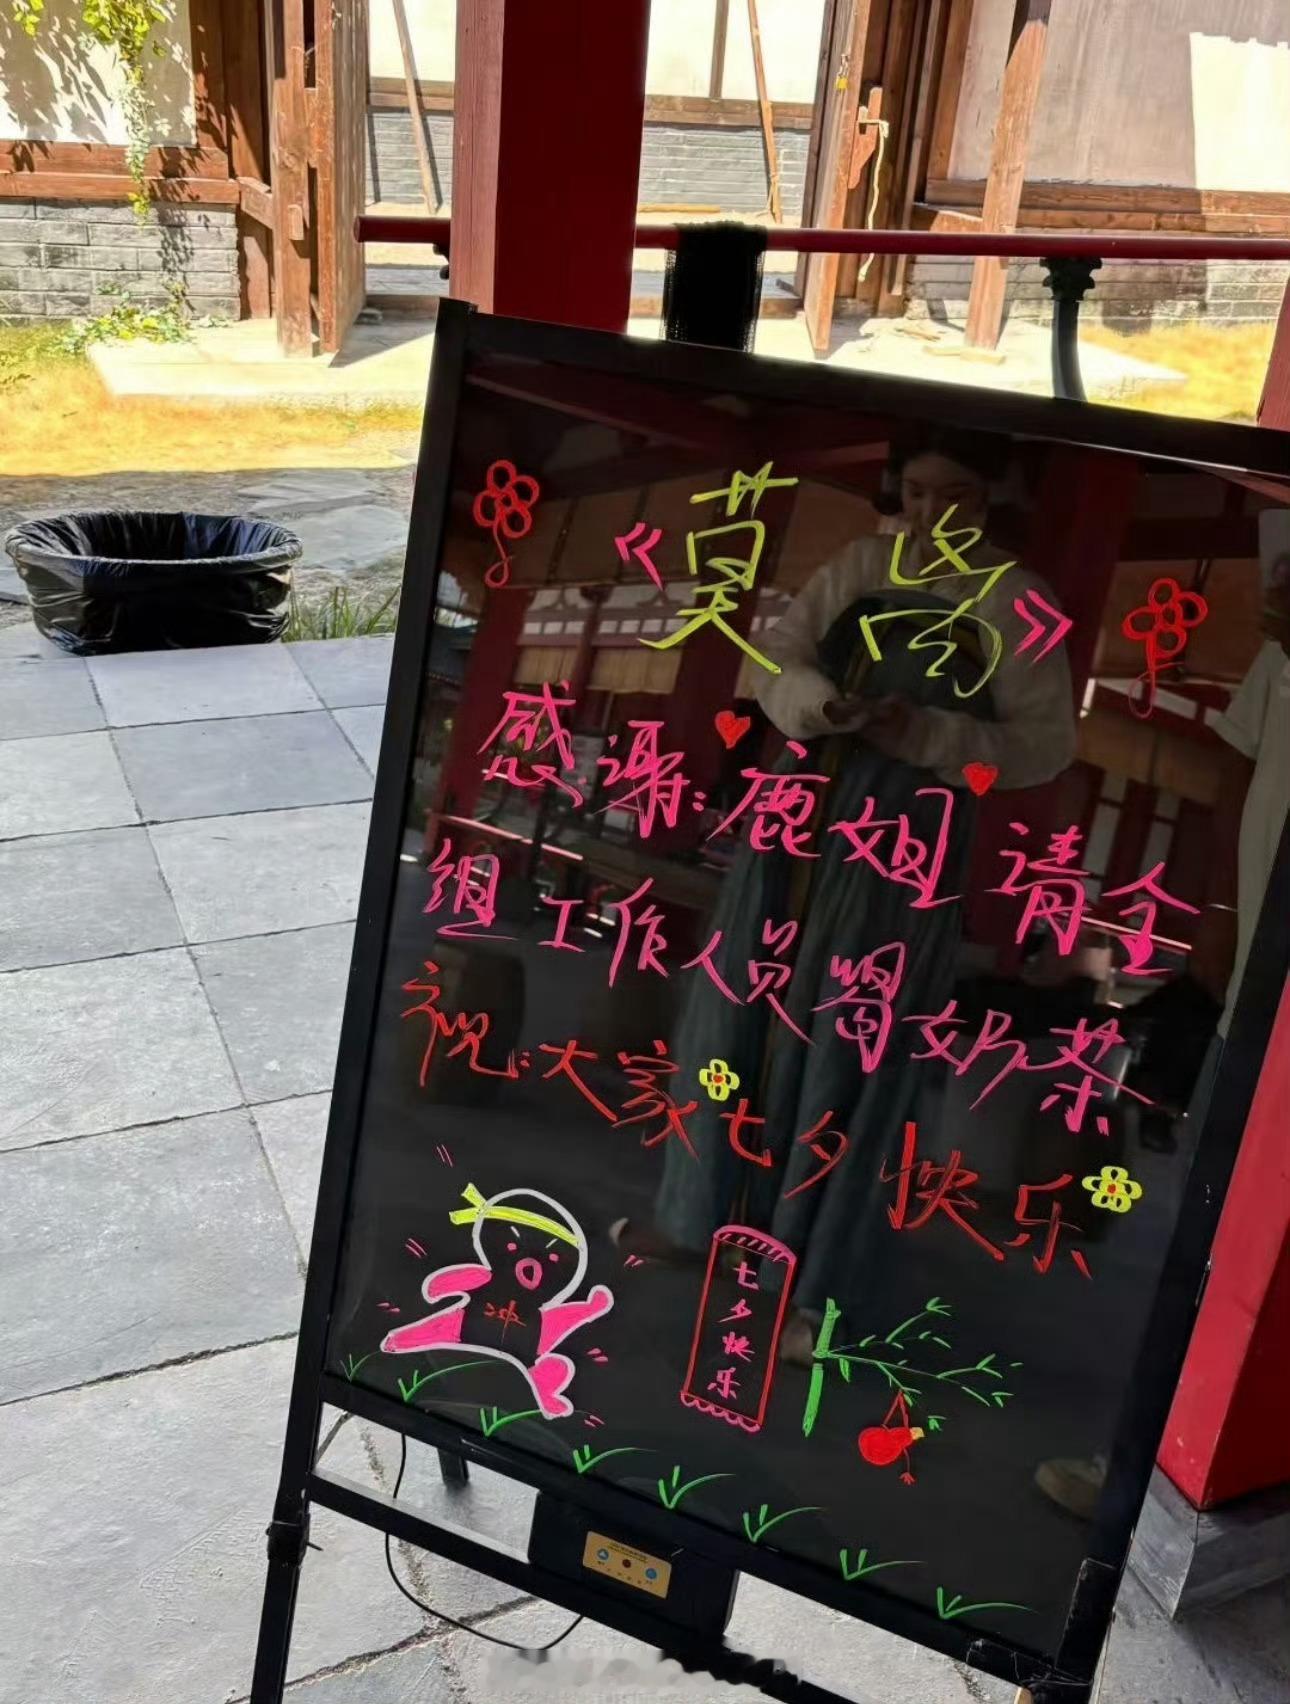 《莫离》
感谢:鹿姐请全
组工作人员喝奶茶
祝:大家七夕快乐
冲
七夕快乐